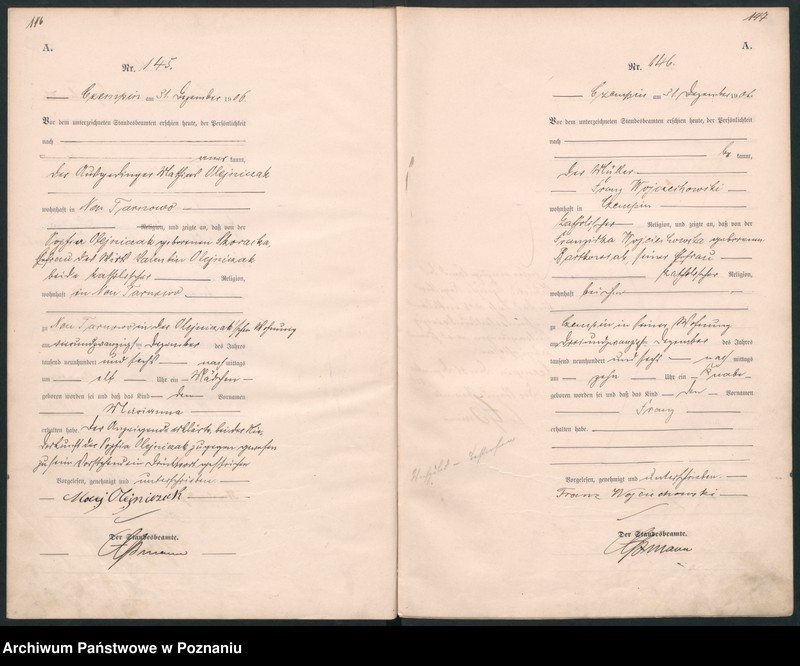 116
A.
Nr. 145.
Czempin am 31. Dezember 1906.
Vor dem unterzeichneten Standesbeamten erschien heute, der Persönlichkeit
nach
kannt,
der Olejniczak
wohnhaft in Neu Tarnowo
Religion, und zeigte an, daß von der
Sophia Olejniczak geborenen Skoracka,
Ehefrau des Wirt Valentin Olejniczak
beide katholischer Religion,
wohnhaft in Neu Tarnowo
zu Neu Tarnowo in der Olejniczak'schen Wohnung
am vierundzwanzigsten Dezember des Jahres
tausend neunhundert und sechs nachmittags
um elf Uhr ein Mädchen
geboren worden sei und daß das Kind den Vornamen
Marianna
erhalten habe. Der Anzeigende erklärte bei der Nie-
derkunft der Sophia Olejniczak zugegen gewesen
zu sein. Vorstehend ein Druckwort gestrichen
Vorgelesen, genehmigt und unterschrieben
Maciej Olejniczak
Der Standesbeamte.
117
A.
Nr. 146.
Czempin am 31. Dezember 1906.
Vor dem unterzeichneten Standesbeamten erschien heute, der Persönlichkeit
nach
be kannt,
Der
Franz Wojciechowski
wohnhaft in Czempin
katholischer Religion, und zeigte an, daß von der
Franziska Wojciechowska geborenen
Bartkowiak seiner Ehefrau
katholischer Religion,
wohnhaft bei ihm
zu Czempin in seiner Wohnung
am dreiundzwanzigsten Dezember des Jahres
tausend neunhundert und sechs nachmittags
um zehn Uhr ein Knabe
geboren worden sei und daß das Kind den Vornamen
Franz
erhalten habe
Vorgelesen, genehmigt und unterschrieben.
Franz Wojciechowski
Der Standesbeamte.
Archiwum Państwowe w Poznaniu